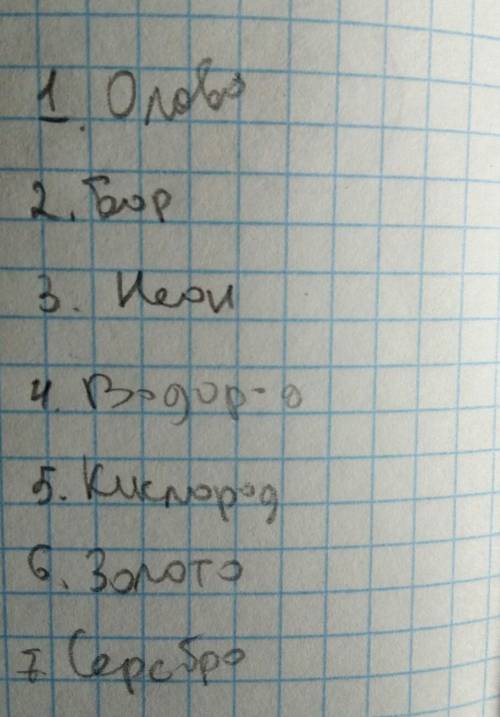 1. Олово
2. Бор
3. Неон
4. Водор-д
5. Кислород
6. Золото
7. Серебро